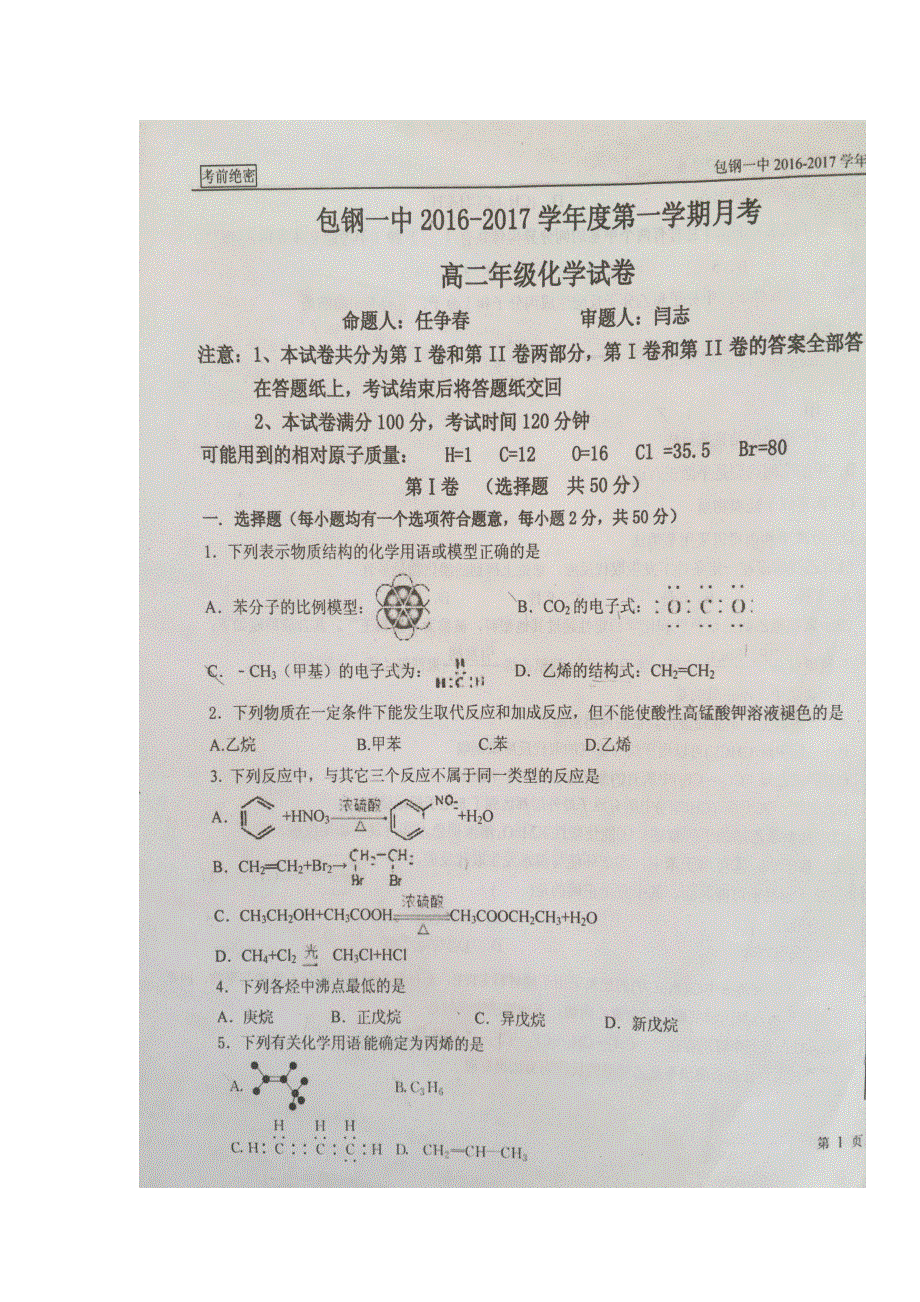 考前绝密
包钢一中 2016-2017 学年
包钢一中 2016-2017 学年度第一学期月考
高二年级化学试卷
命题人：任争春 审题人：闫志
注意：1、本试卷共分为第 I 卷和第 II 卷两部分，第 I 卷和第 II 卷的答案全部答
在答题纸上，考试结束后将答题纸交回
2、本试卷满分 100 分，考试时间 120 分钟
可能用到的相对原子质量： H=1 C=12 O=16 Cl =35.5 Br=80
第 I 卷 （选择题 共 50 分）
一．选择题（每小题均有一个选项符合题意，每小题 2 分，共 50 分）
1．下列表示物质结构的化学用语或模型正确的是
A．苯分子的比例模型： B．CO₂ 的电子式：:O:C:O:
C．﹣CH₃（甲基）的电子式为：H:C:H H D．乙烯的结构式：CH₂=CH₂
2．下列物质在一定条件下能发生取代反应和加成反应，但不能使酸性高锰酸钾溶液褪色的是
A.乙烷 B.甲苯 C.苯 D.乙烯
3．下列反应中，与其它三个反应不属于同一类型的反应是
A． +HNO₃ 浓硫酸 △ → NO₂ +H₂O
B．CH₂═CH₂+Br₂→ CH₂—CH₂ Br Br
C．CH₃CH₂OH+CH₃COOH 浓硫酸 △ CH₃COOCH₂CH₃+H₂O
D．CH₄+Cl₂ 光 → CH₃Cl+HCl
4．下列各烃中沸点最低的是
A．庚烷 B．正戊烷 C．异戊烷 D．新戊烷
5．下列有关化学用语能确定为丙烯的是
A. B. C₃H₆
H H H
C. H:C::C:C:H D. CH₂═CH—CH₃
第 1 页